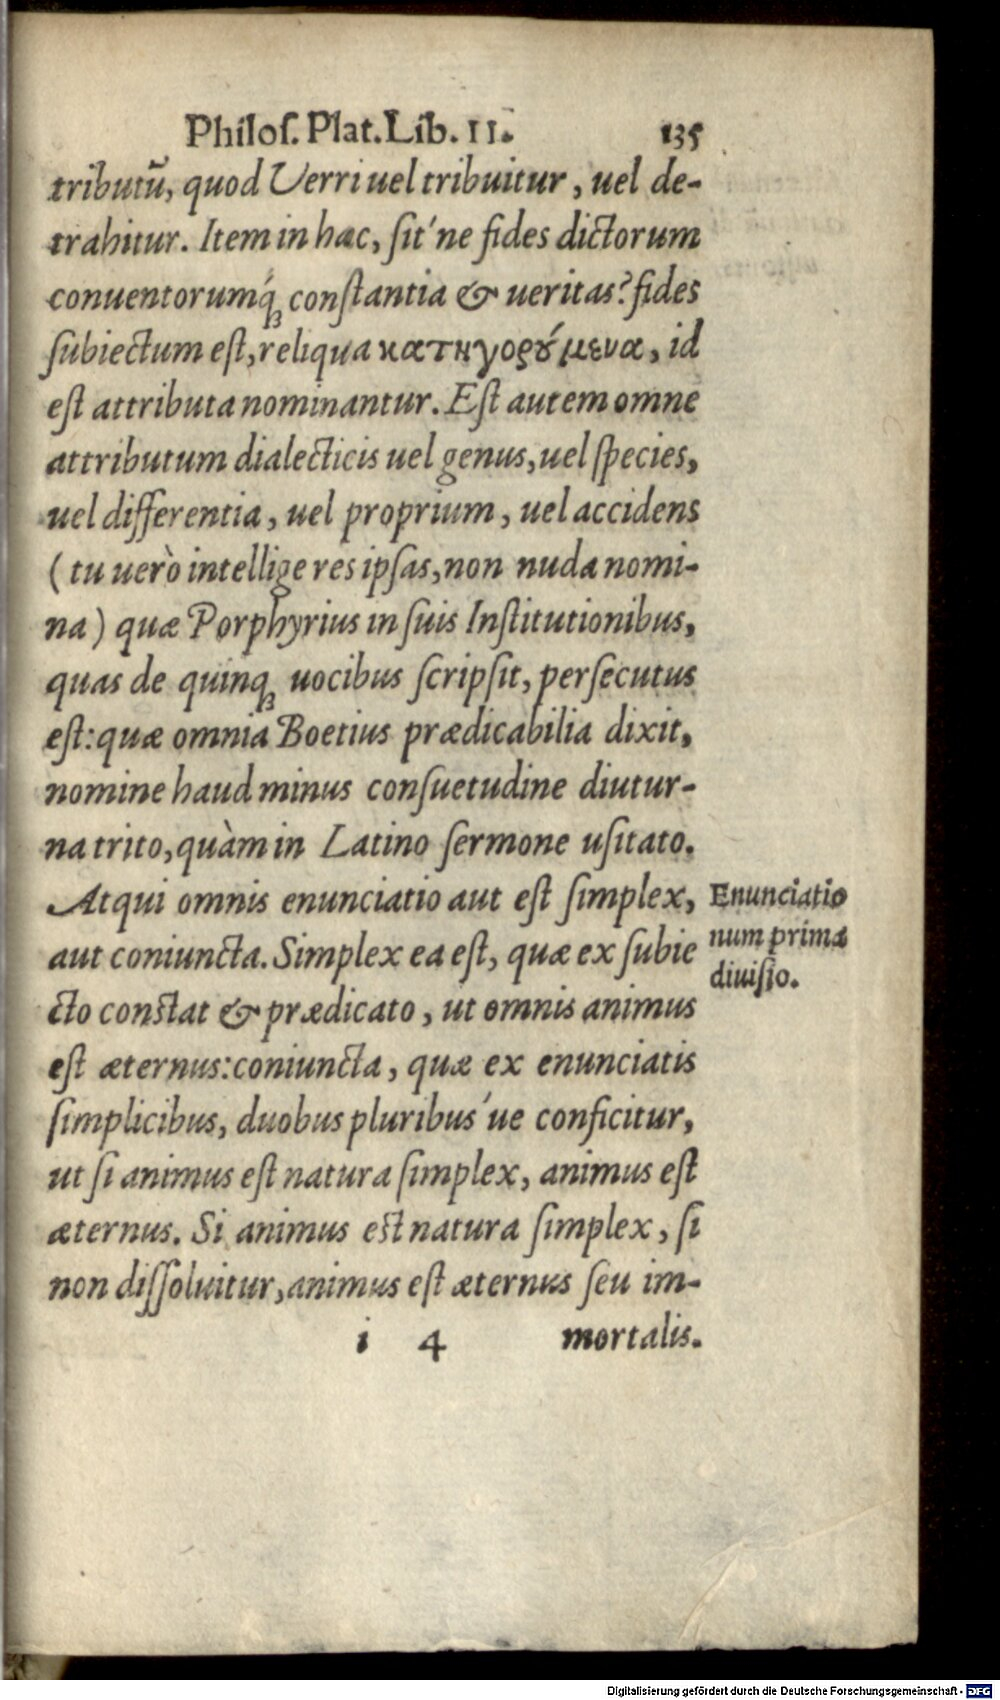 Philos. Plat. Lib. II. 135
tributũ, quod Verri uel tribuitur, uel de-
trahitur. Item in hac, sit'ne fides dictorum
conuentorumq́ꝫ constantia & ueritas? fides
subiectum est, reliqua κατηγορȣ́μενα, id
est attributa nominantur. Est autem omne
attributum dialecticis uel genus, uel species,
uel differentia, uel proprium, uel accidens
(tu uerò intellige res ipsas, non nuda nomi-
na) quæ Porphyrius in suis Institutionibus,
quas de quinqꝫ uocibus scripsit, persecutus
est: quæ omnia Boetius prædicabilia dixit,
nomine haud minus consuetudine diutur-
na trito, quàm in Latino sermone usitato.
Atqui omnis enunciatio aut est simplex,
aut coniuncta. Simplex ea est, quæ ex subie
cto constat & prædicato, ut omnis animus
est æternus: coniuncta, quæ ex enunciatis
simplicibus, duobus pluribus'ue conficitur,
ut si animus est natura simplex, animus est
æternus. Si animus est natura simplex, si
non dissoluitur, animus est æternus seu im-
i 4 mortalis.
Enunciatio
num primæ
diuisio.
Digitalisierung gefördert durch die Deutsche Forschungsgemeinschaft - DFG